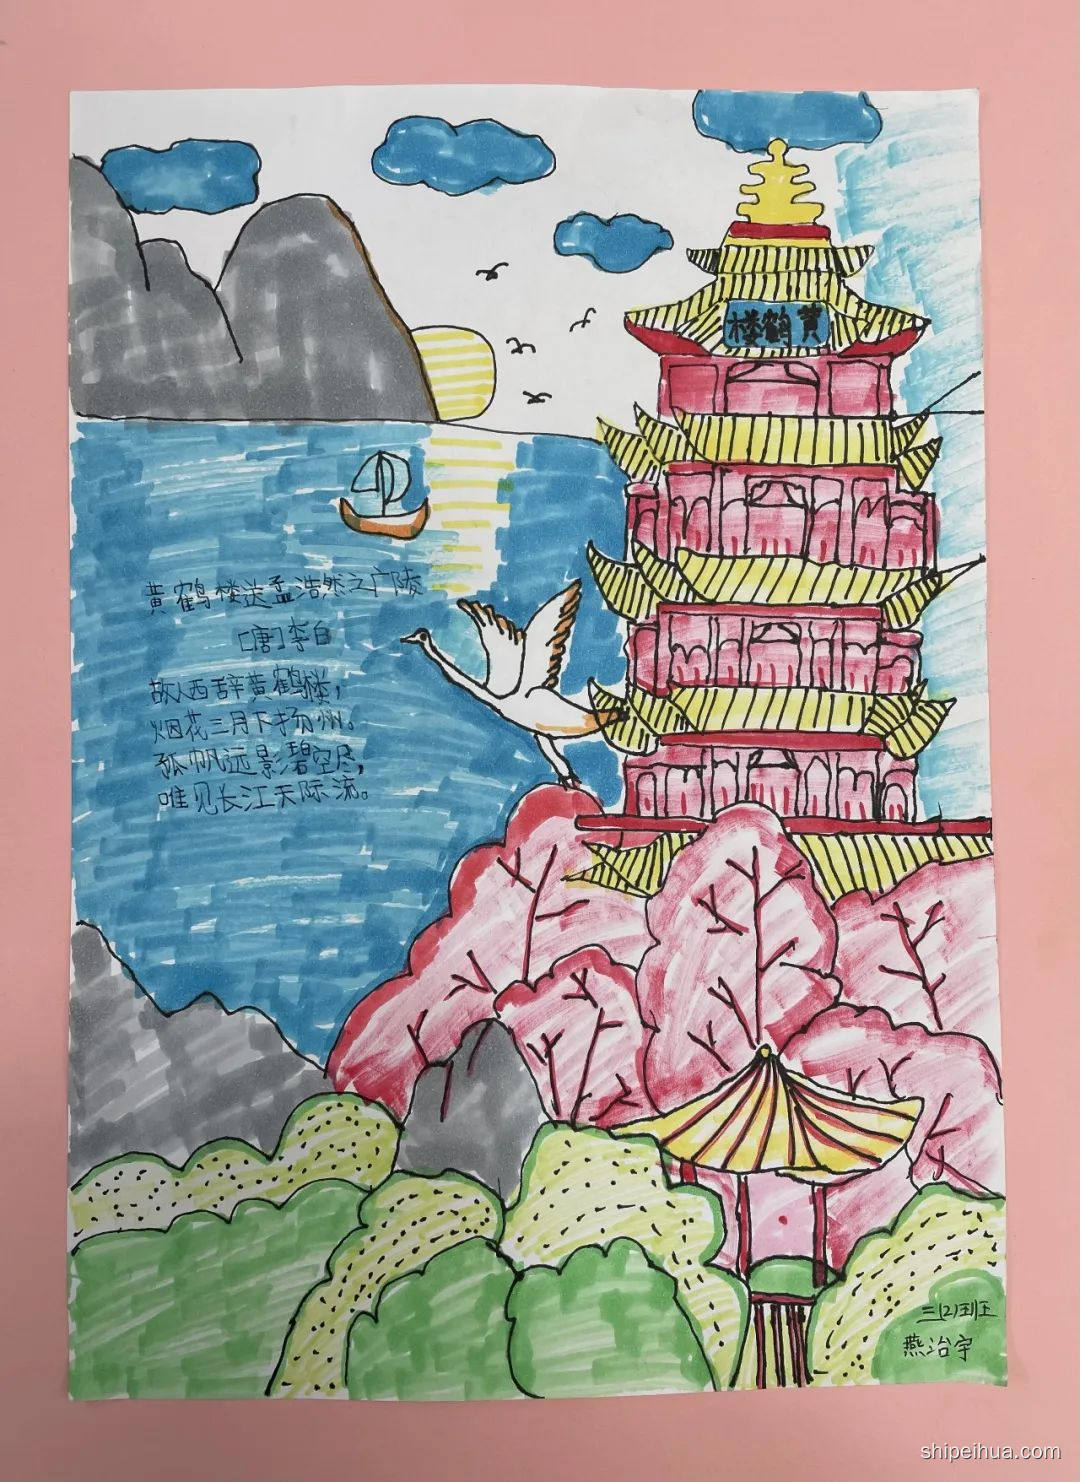 黄鹤楼
黄鹤楼送孟浩然之广陵
[唐]李白
故人西辞黄鹤楼,
烟花三月下扬州。
孤帆远影碧空尽,
唯见长江天际流。
三(2)班
燕治宇
shipeihua.com